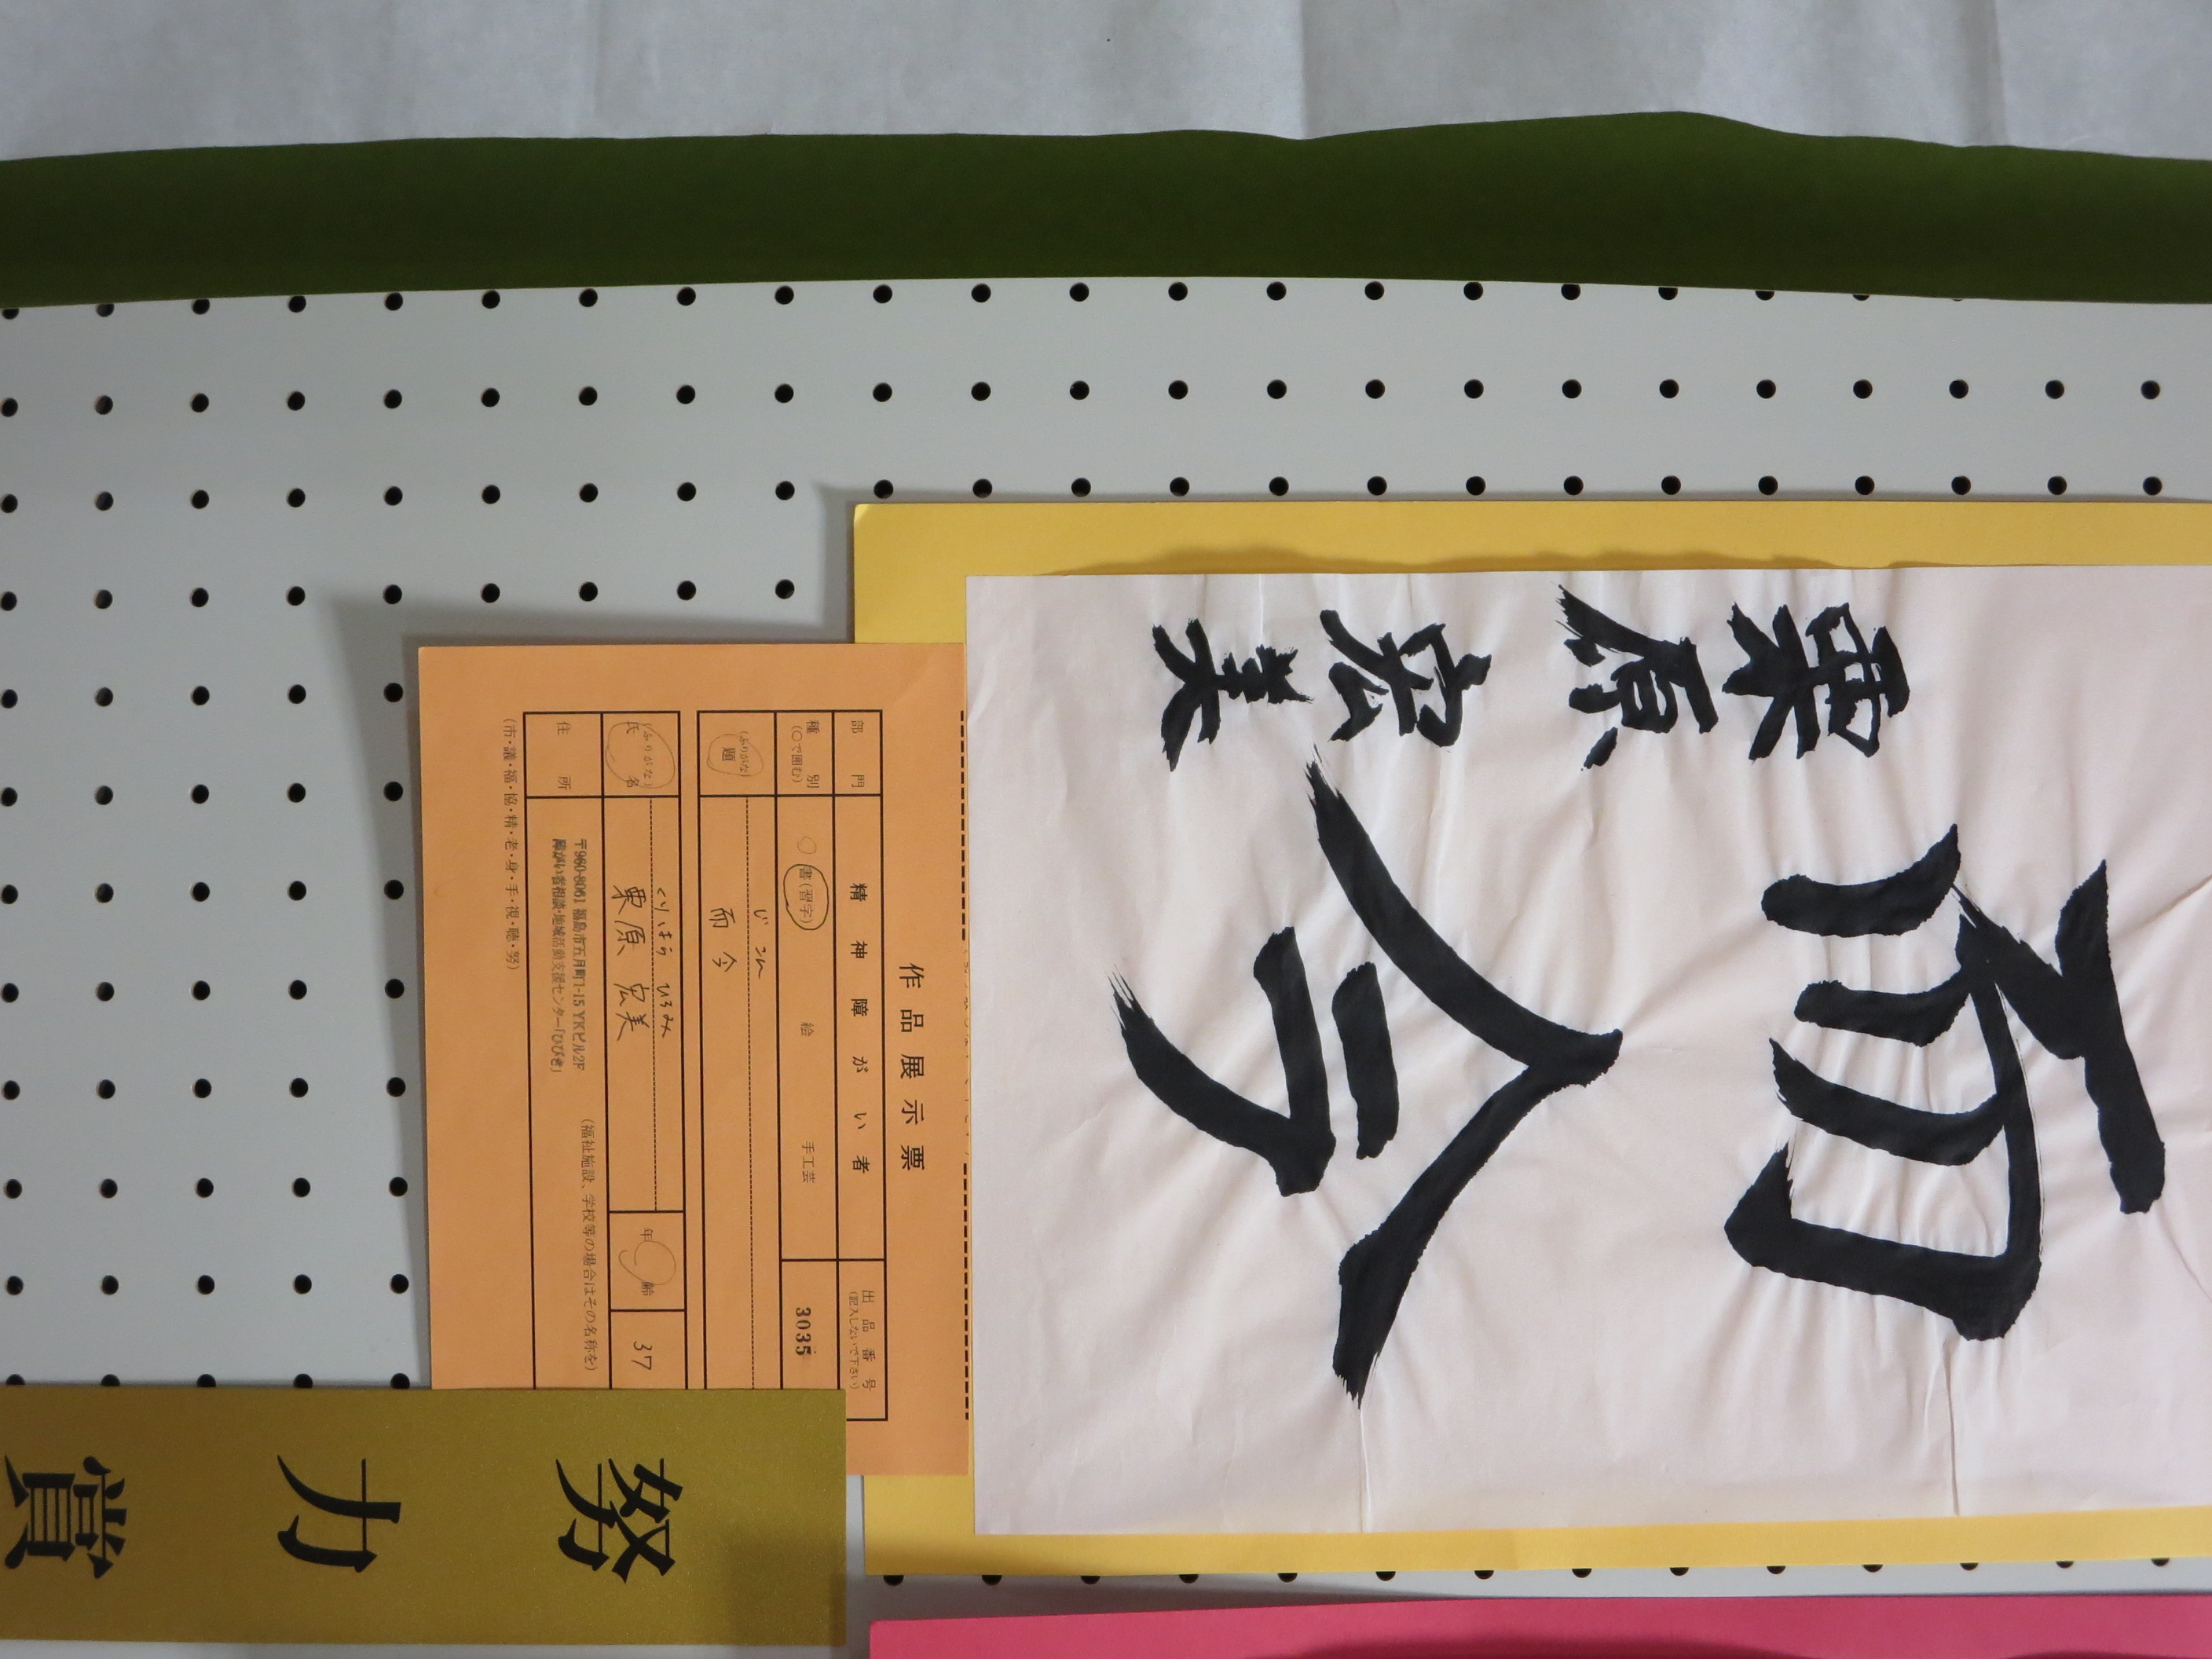 而今
栗原宏美
作品展示票
部門
精神障がい者
出品番号
(記入しないで下さい)
種別
(○で囲む)
書(習字)
絵
手工芸
3035
(ふりがな)
題
じこん
而今
(ふりがな)
氏名
くりはら ひろみ
栗原 宏美
年齢
37
住所
(福祉施設、学校等の場合はその名称を)
〒960-8061 福島市五月町1-15 YKビル2F
障がい者相談・地域活動支援センター「ひびき」
(市・議・福・協・精・老・身・手・視・聴・努)
努力賞